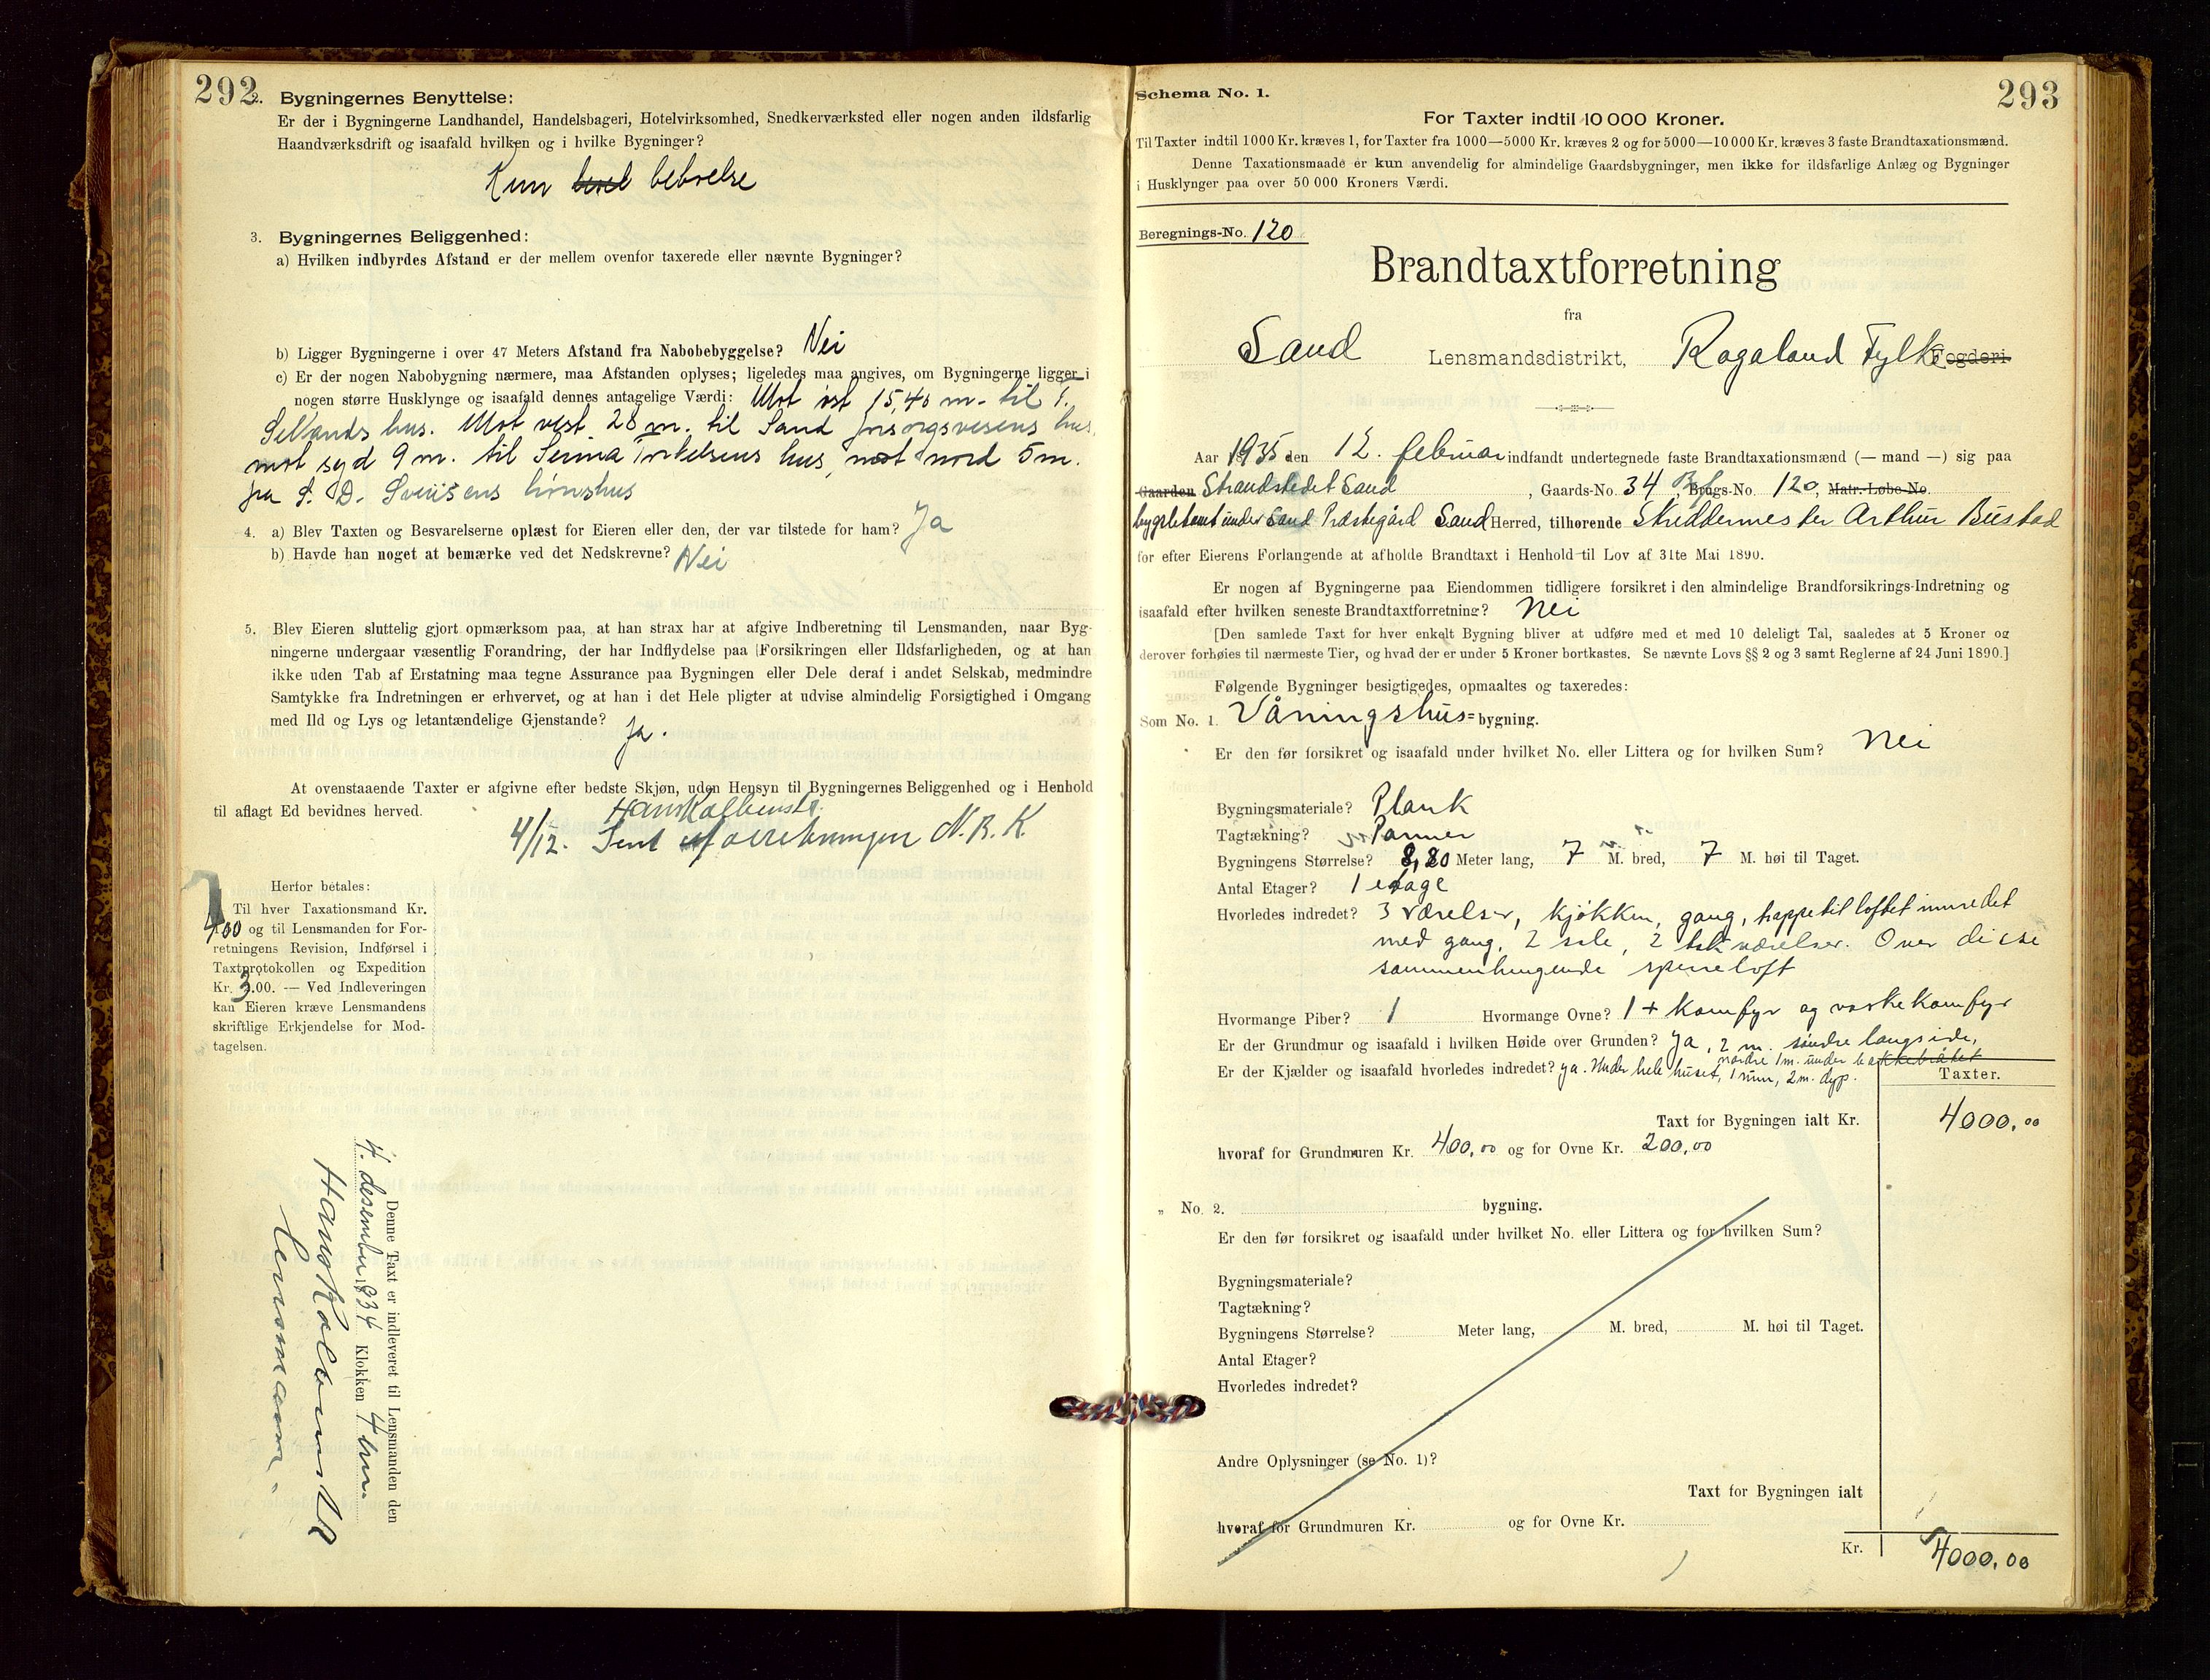 292
2. Bygningernes Benyttelse:
Er der i Bygningerne Landhandel, Handelsbageri, Hotelvirksomhed, Snedkerværksted eller nogen anden ildsfarlig
Haandværksdrift og isaafald hvilken og i hvilke Bygninger?
Kun beboelse
3. Bygningernes Beliggenhed:
a) Hvilken indbyrdes Afstand er der mellem ovenfor taxerede eller nævnte Bygninger?
b) Ligger Bygningerne i over 47 Meters Afstand fra Nabobebyggelse? Nei
c) Er der nogen Nabobygning nærmere, maa Afstanden oplyses; ligeledes maa angives, om Bygningerne ligger i
nogen større Husklynge og isaafald dennes antagelige Værdi: Mot øst 15,40 m. til T.
Sellands hus. Mot vest 28 m. til Sand forsorgsvesens hus,
mot syd 9 m. til Serina Torkelsens hus, mot nord 5 m.
fra S. D. Svensens hønshus
4. a) Blev Taxten og Besvarelserne oplæst for Eieren eller den, der var tilstede for ham? Ja
b) Havde han noget at bemærke ved det Nedskrevne? Nei
5. Blev Eieren sluttelig gjort opmærksom paa, at han strax har at afgive Indberetning til Lensmanden, naar Byg-
ningerne undergaar væsentlig Forandring, der har Indflydelse paa Forsikringen eller Ildsfarligheden, og at han
ikke uden Tab af Erstatning maa tegne Assurance paa Bygningen eller Dele deraf i andet Selskab, medmindre
Samtykke fra Indretningen er erhvervet, og at han i det Hele pligter at udvise almindelig Forsigtighed i Omgang
med Ild og Lys og letantændelige Gjenstande? Ja.
At ovenstaaende Taxter er afgivne efter bedste Skjøn, uden Hensyn til Bygningernes Beliggenhed og i Henhold
til aflagt Ed bevidnes herved.
4/12. Sent N. B. K.
Herfor betales:
Til hver Taxationsmand Kr.
4.00 og til Lensmanden for For-
retningens Revision, Indførsel i
Taxtprotokollen og Expedition
Kr. 3.00. — Ved Indleveringen
kan Eieren kræve Lensmandens
skriftlige Erkjendelse for Mod-
tagelsen.
Denne Taxt er indleveret til Lensmanden den
4. desember 1934 Klokken 4 em.
Lensmann.
293
Schema No. 1.
For Taxter indtil 10 000 Kroner.
Til Taxter indtil 1000 Kr. kræves 1, for Taxter fra 1000—5000 Kr. kræves 2 og for 5000—10 000 Kr. kræves 3 faste Brandtaxationsmænd.
Denne Taxationsmaade er kun anvendelig for almindelige Gaardsbygninger, men ikke for ildsfarlige Anlæg og Bygninger
i Husklynger paa over 50 000 Kroners Værdi.
Beregnings-No. 120
Brandtaxtforretning
fra
Sand Lensmandsdistrikt, Rogaland Fylke Fogderi.
Aar 1935 den 12. februar indfandt undertegnede faste Brandtaxationsmænd (— mand —) sig paa
Gaarden Strandstedet Sand, Gaards-No. 34 Brugs-No. 120, Matr.-Løbe-No.
bygslet tomt under Sand Præstegård Sand Herred, tilhørende Skreddermester Arthur Bustad
for efter Eierens Forlangende at afholde Brandtaxt i Henhold til Lov af 31te Mai 1890.
Er nogen af Bygningerne paa Eiendommen tidligere forsikret i den almindelige Brandforsikrings-Indretning og
isaafald efter hvilken seneste Brandtaxtforretning? Nei
[Den samlede Taxt for hver enkelt Bygning bliver at udføre med et med 10 deleligt Tal, saaledes at 5 Kroner og
derover forhøies til nærmeste Tier, og hvad der er under 5 Kroner bortkastes. Se nævnte Lovs §§ 2 og 3 samt Reglerne af 24 Juni 1890.]
Følgende Bygninger besigtigedes, opmaaltes og taxeredes:
Som No. 1. Våningshus=bygning.
Er den før forsikret og isaafald under hvilket No. eller Littera og for hvilken Sum? Nei
Bygningsmateriale? Plank
Tagtækning? Panner
Bygningens Størrelse? 8,80 Meter lang, 7 M. bred, 7 M. høi til Taget.
Antal Etager? 1 etage
Hvorledes indredet? 3 værelser, kjøkken, gang, trappe til loftet innredet
med gang, 2 sale, 2 værelser. Over disse
sammenhengende sperreloft
Hvormange Piber? 1 Hvormange Ovne? 1 + komfyr og vaskekomfyr
Er der Grundmur og isaafald i hvilken Høide over Grunden? Ja, 2 m. søndre langside,
nordre 1 m. under
Er der Kjælder og isaafald hvorledes indredet? ja. Under hele huset, 1 rum, 2 m. dyp.
Taxter.
Taxt for Bygningen ialt Kr. 4000,00
hvoraf for Grundmuren Kr. 400,00 og for Ovne Kr. 200,00
„ No. 2. bygning.
Er den før forsikret og isaafald under hvilket No. eller Littera og for hvilken Sum?
Bygningsmateriale?
Tagtækning?
Bygningens Størrelse? Meter lang, M. bred, M. høi til Taget.
Antal Etager?
Hvorledes indredet?
Andre Oplysninger (se No. 1)?
Taxt for Bygningen ialt
hvoraf for Grundmuren Kr. og for Ovne Kr.
Kr. 4000,00